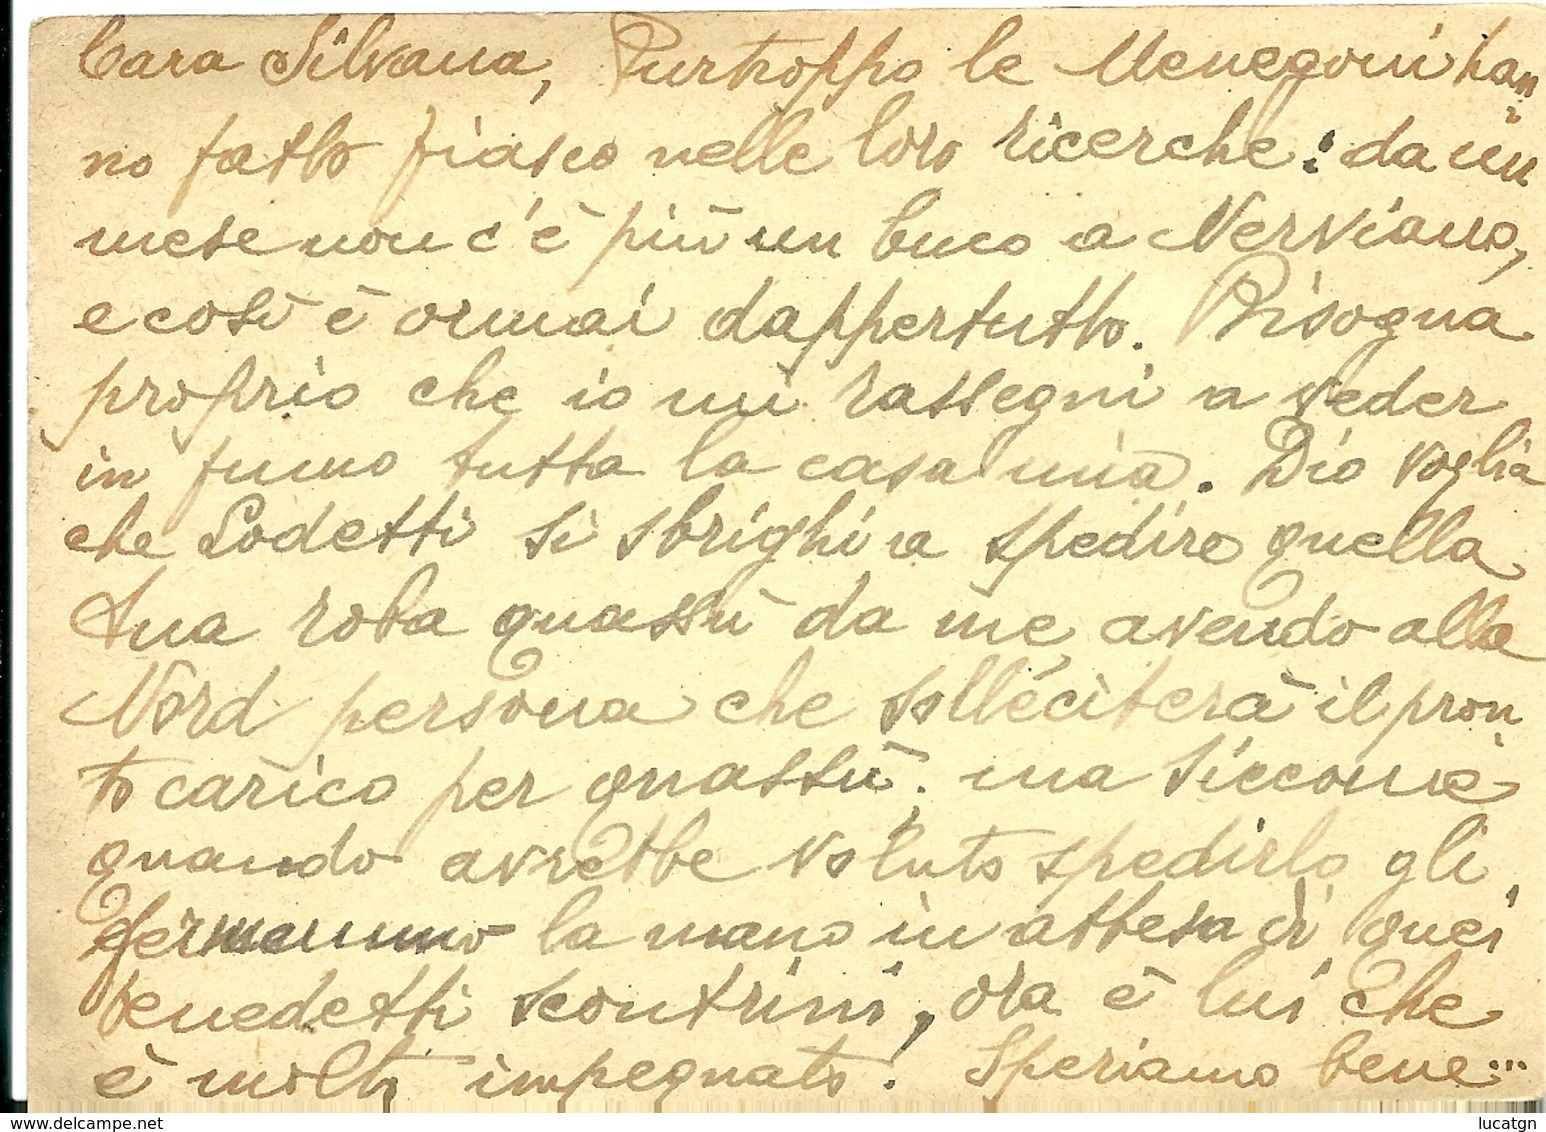 Cara Silvana, Purtroppo le Menegoni han
no fatto fiasco nelle loro ricerche: da un
mese non c'è più un buco a Nerviano,
e così è ormai dappertutto. Bisogna
proprio che io mi rassegni a veder
in fumo tutta la casa mia. Dio voglia
che Lodetti si sbrighi a spedire quella
tua roba quassù da me, avendo alla
Nord persona che solleciterà il pron
to carico per quassù: ma siccome
quando avrebbe voluto spedirlo gli
fermammo la mano in attesa di quei
benedetti scontrini, ora è lui che
è molto impegnato! Speriamo bene...
www.delcampe.net
lucatgn